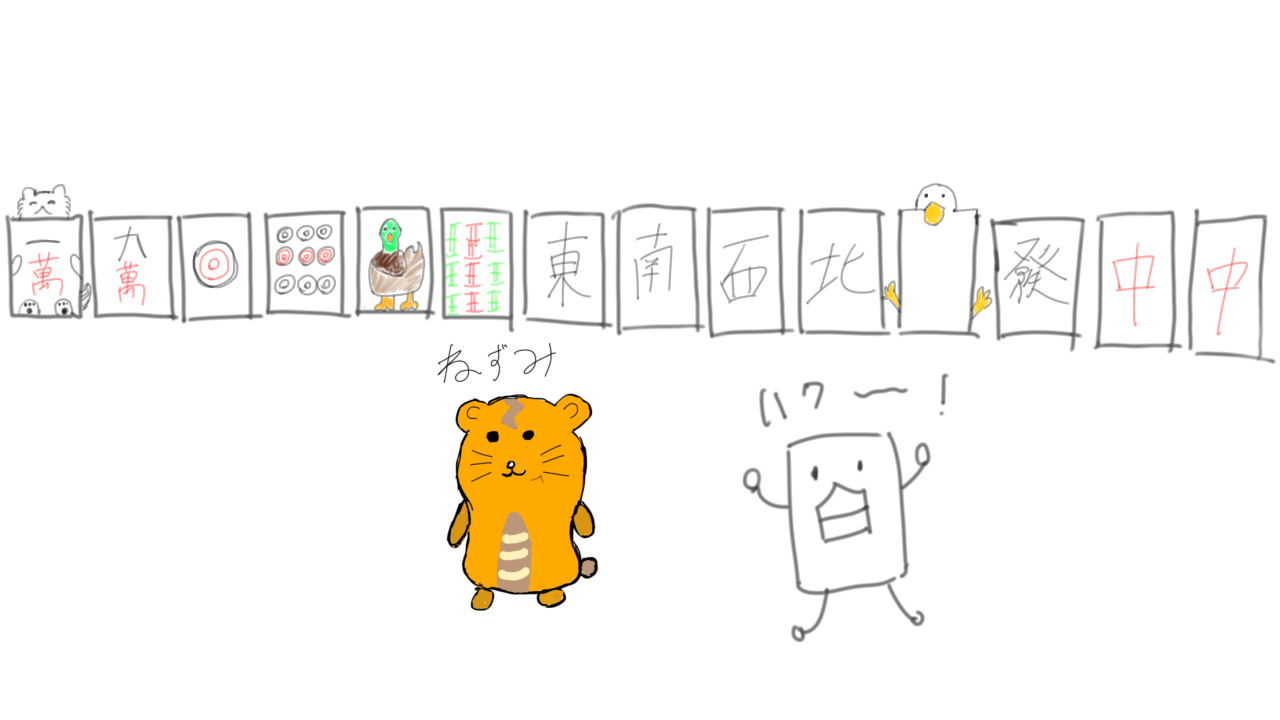 一萬 九萬 東 南 西 北 發 中 中
ねずみ
ハクー!
白